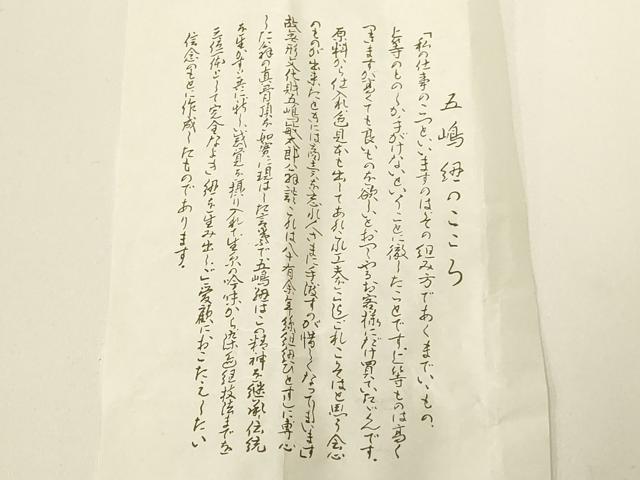 五嶋紐のこころ
「私の仕事のこつといいますのはその組み方であくまでいいもの、
上等のものしか手がけないということに徹したことです。上等ものは高く
つきますが高くても良いものを欲しいとおっしゃるお客様にだけ買っていただくんです。
原料から仕入れ色見本も出してあれこれ工夫をこらしこれこそはと思う会心
のものが出来たときには商売を忘れお客さまに手渡すのが惜しくなってしまいます」
故無形文化財五嶋敏太郎翁談 これは八十有余年絲組紐ひとすじに専心
した翁の真骨頂を如実に現はした言葉で五嶋紐はこの精神を継承伝統
を生かす共に新しい感覚を採り入れて生糸の吟味から染色組技法までを
三位一体として完全なよき紐を生み出しご愛顧におこたえしたい
信念のもとに作成したものであります。